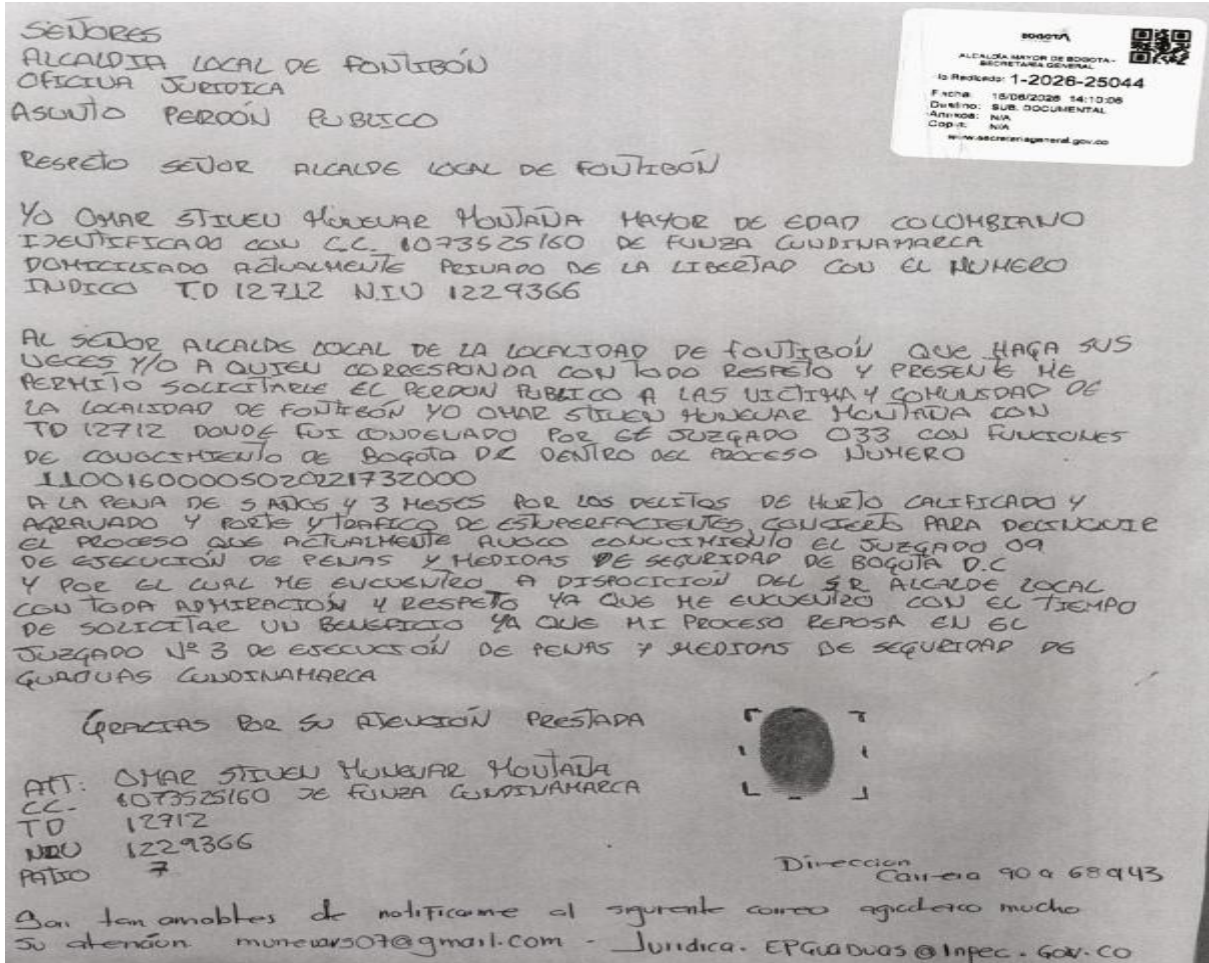 SEÑORES
ALCALDIA LOCAL DE FONTIBÓN
OFICINA JURIDICA
ASUNTO PERDÓN PUBLICO
BOGOTÁ
ALCALDÍA MAYOR DE BOGOTA -
SECRETARÍA GENERAL
No Radicado: 1-2026-25044
Fecha: 18/06/2026 14:10:06
Destino: SUB. DOCUMENTAL
Anexos: N/A
Copia: N/A
www.secretariageneral.gov.co
RESPETO SEÑOR ALCALDE LOCAL DE FONTIBÓN
YO OMAR STIVEN MUNEVAR MONTAÑA MAYOR DE EDAD COLOMBIANO
IDENTIFICADO CON C.C. 1073525160 DE FUNZA CUNDINAMARCA
DOMICILIADO ACTUALMENTE PRIVADO DE LA LIBERTAD CON EL NUMERO
INDICO T.D 12712 N.I.U 1229366
AL SEÑOR ALCALDE LOCAL DE LA LOCALIDAD DE FONTIBÓN QUE HAGA SUS
VECES Y/O A QUIEN CORRESPONDA CON TODO RESPETO Y PRESENTE ME
PERMITO SOLICITARLE EL PERDON PUBLICO A LAS VICTIMA Y COMUNIDAD DE
LA LOCALIDAD DE FONTIBÓN YO OMAR STIVEN MUNEVAR MONTAÑA CON
TD 12712 DONDE FUI CONDENADO POR EL JUZGADO 033 CON FUNCIONES
DE CONOCIMIENTO DE BOGOTA DC DENTRO DEL PROCESO NUMERO
11001600005020221732000
A LA PENA DE 5 AÑOS Y 3 MESES POR LOS DELITOS DE HURTO CALIFICADO Y
AGRAVADO Y PORTE Y TRAFICO DE ESTUPERFACIENTES, CONCIERTO PARA DELINQUIR
EL PROCESO QUE ACTUALMENTE AVOCO CONOCIMIENTO EL JUZGADO 09
DE EJECUCIÓN DE PENAS Y MEDIDAS DE SEGURIDAD DE BOGOTA D.C
Y POR EL CUAL ME ENCUENTRO A DISPOCICION DEL SR ALCALDE LOCAL
CON TODA ADMIRACIÓN Y RESPETO YA QUE ME ENCUENTRO CON EL TIEMPO
DE SOLICITAR UN BENEFICIO YA QUE MI PROCESO REPOSA EN EL
JUZGADO Nº 3 DE EJECUCIÓN DE PENAS Y MEDIDAS DE SEGURIDAD DE
GUADUAS CUNDINAMARCA
GRACIAS POR SU ATENCIÓN PRESTADA
ATT: OMAR STIVEN MUNEVAR MONTAÑA
CC. 1073525160 DE FUNZA CUNDINAMARCA
TD 12712
NIU 1229366
PATIO 7
Direccion
Carrera 90 a 68 a 43
San tan amables de notificarme al siguiente correo agradezco mucho
su atención munevars07@gmail.com - Juridica. EPGuaduas@Inpec.Gov.co